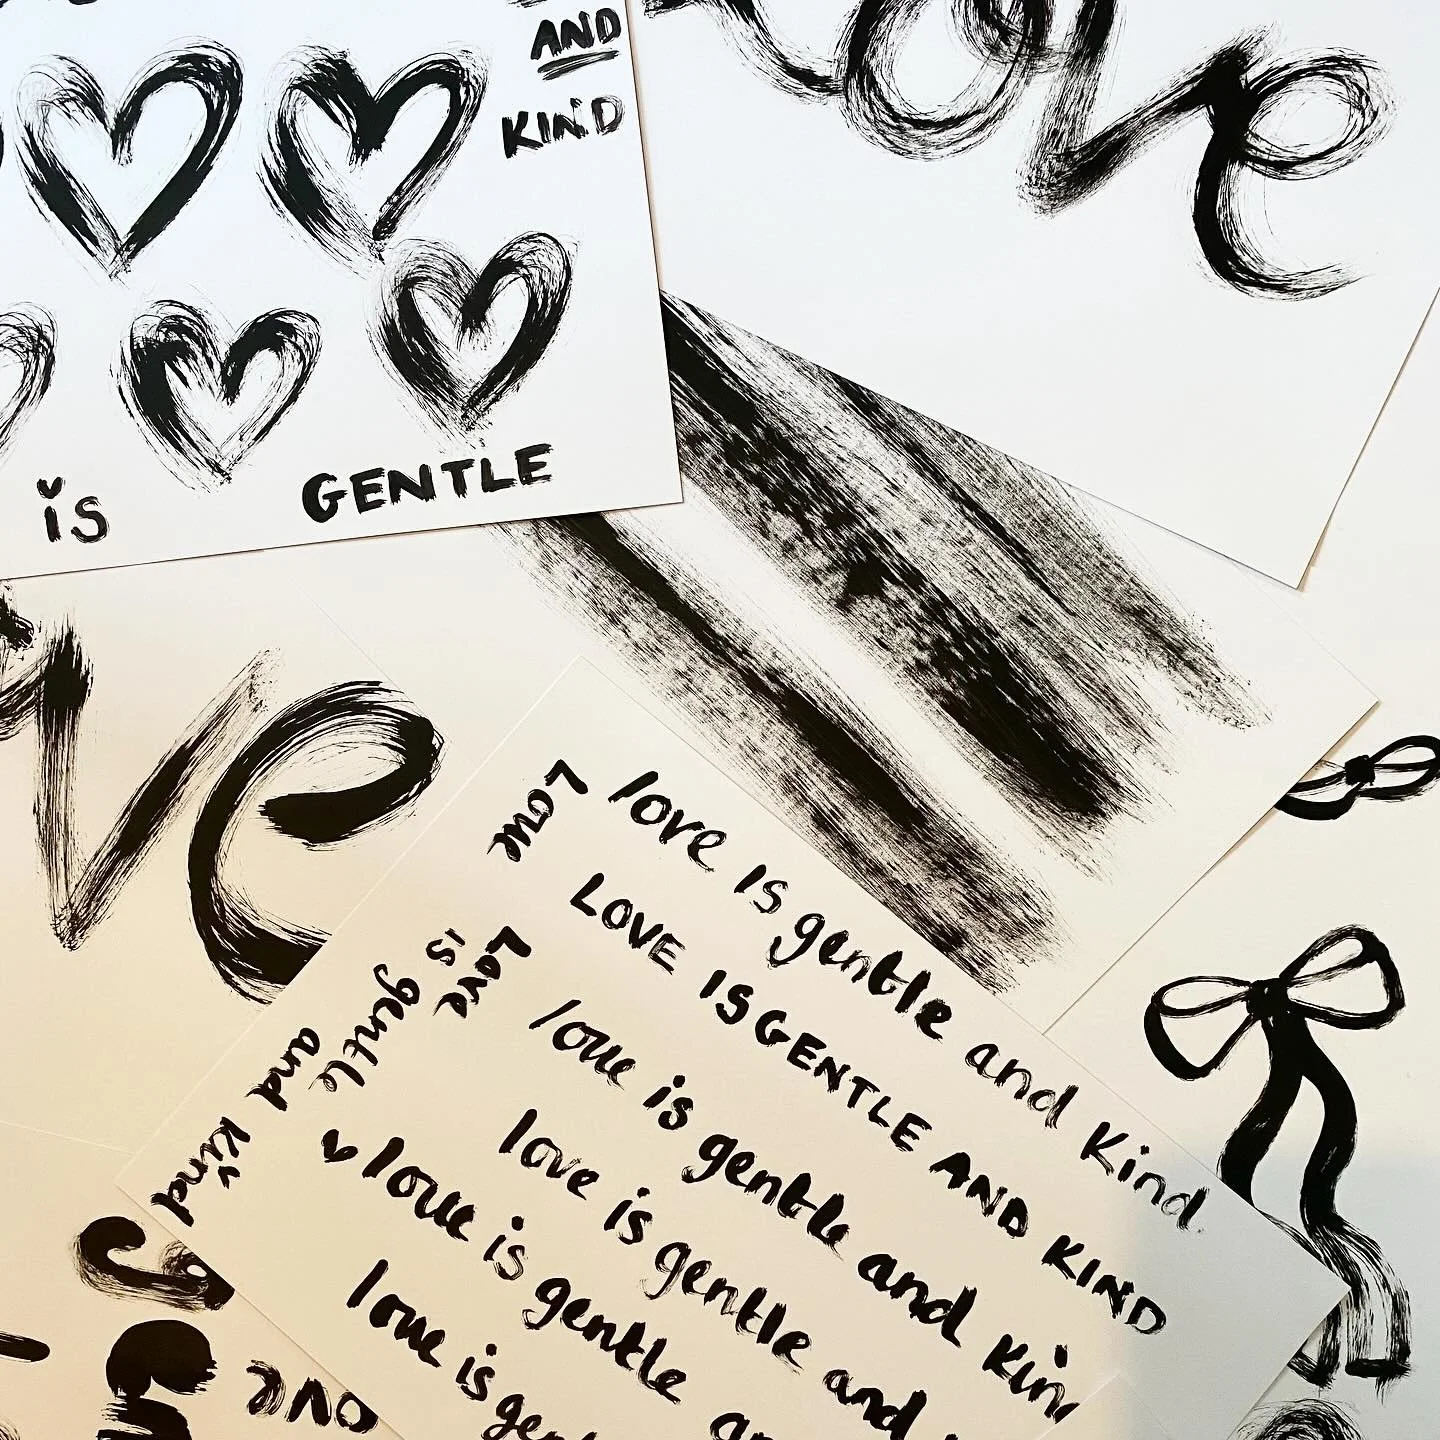 AND
KIND
is
GENTLE
love
ve
love is gentle and kind
LOVE IS GENTLE AND KIND
love is gentle and kin
love is gentle and
love is gentle
love is gent
Love
Love
is
gentle
and
kind
ove